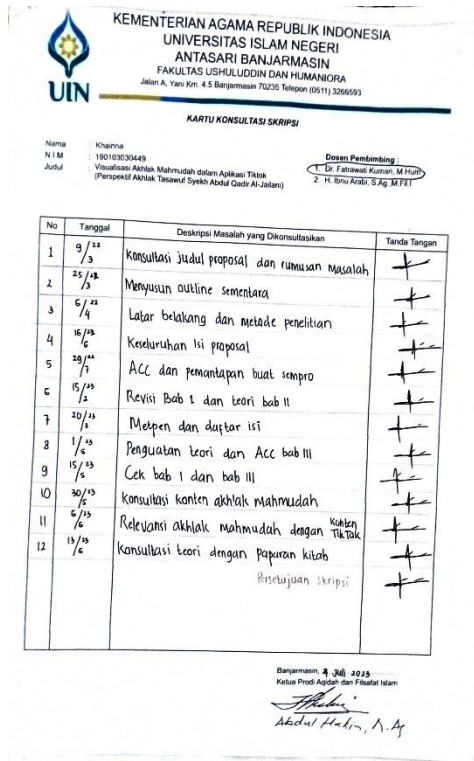 KEMENTERIAN AGAMA REPUBLIK INDONESIA
UNIVERSITAS ISLAM NEGERI
ANTASARI BANJARMASIN
FAKULTAS USHULUDDIN DAN HUMANIORA
Jalan A, Yani Km. 4.5 Banjarmasin 70235 Telepon (0511) 3266593
UIN
KARTU KONSULTASI SKRIPSI
Nama : Khairina
N I M : 190103030449
Judul : Visualisasi Akhlak Mahmudah dalam Aplikasi Tiktok
(Perspektif Akhlak Tasawuf Syekh Abdul Qadir Al-Jailani)
Dosen Pembimbing :
1. Dr. Fatrawati Kumari, M.Hum
2. H. Ibnu Arabi, S.Ag.,M.Fil.I
No Tanggal Deskripsi Masalah yang Dikonsultasikan Tanda Tangan
1 9/3 22 Konsultasi judul proposal dan rumusan Masalah
2 25/3 Menyusun outline sementara
3 6/4 22 Latar belakang dan metode penelitian
4 16/6 Keseluruhan Isi proposal
5 29/7 22 ACC dan pemantapan buat sempro
6 15/2 23 Revisi Bab 1 dan teori bab II
7 20/3 23 Metpen dan daftar isi
8 1/5 23 Penguatan teori dan Acc bab III
9 15/5 23 Cek bab 1 dan bab III
10 30/5 23 Konsultasi konten akhlak mahmudah
11 6/6 23 Relevansi akhlak mahmudah dengan Konten TikTok
12 13/6 23 Konsultasi teori dengan paparan kitab
Persetujuan skripsi
Banjarmasin, 4 Juli 2023
Ketua Prodi Aqidah dan Filsafat Islam
Abdul Hakim, M.Ag